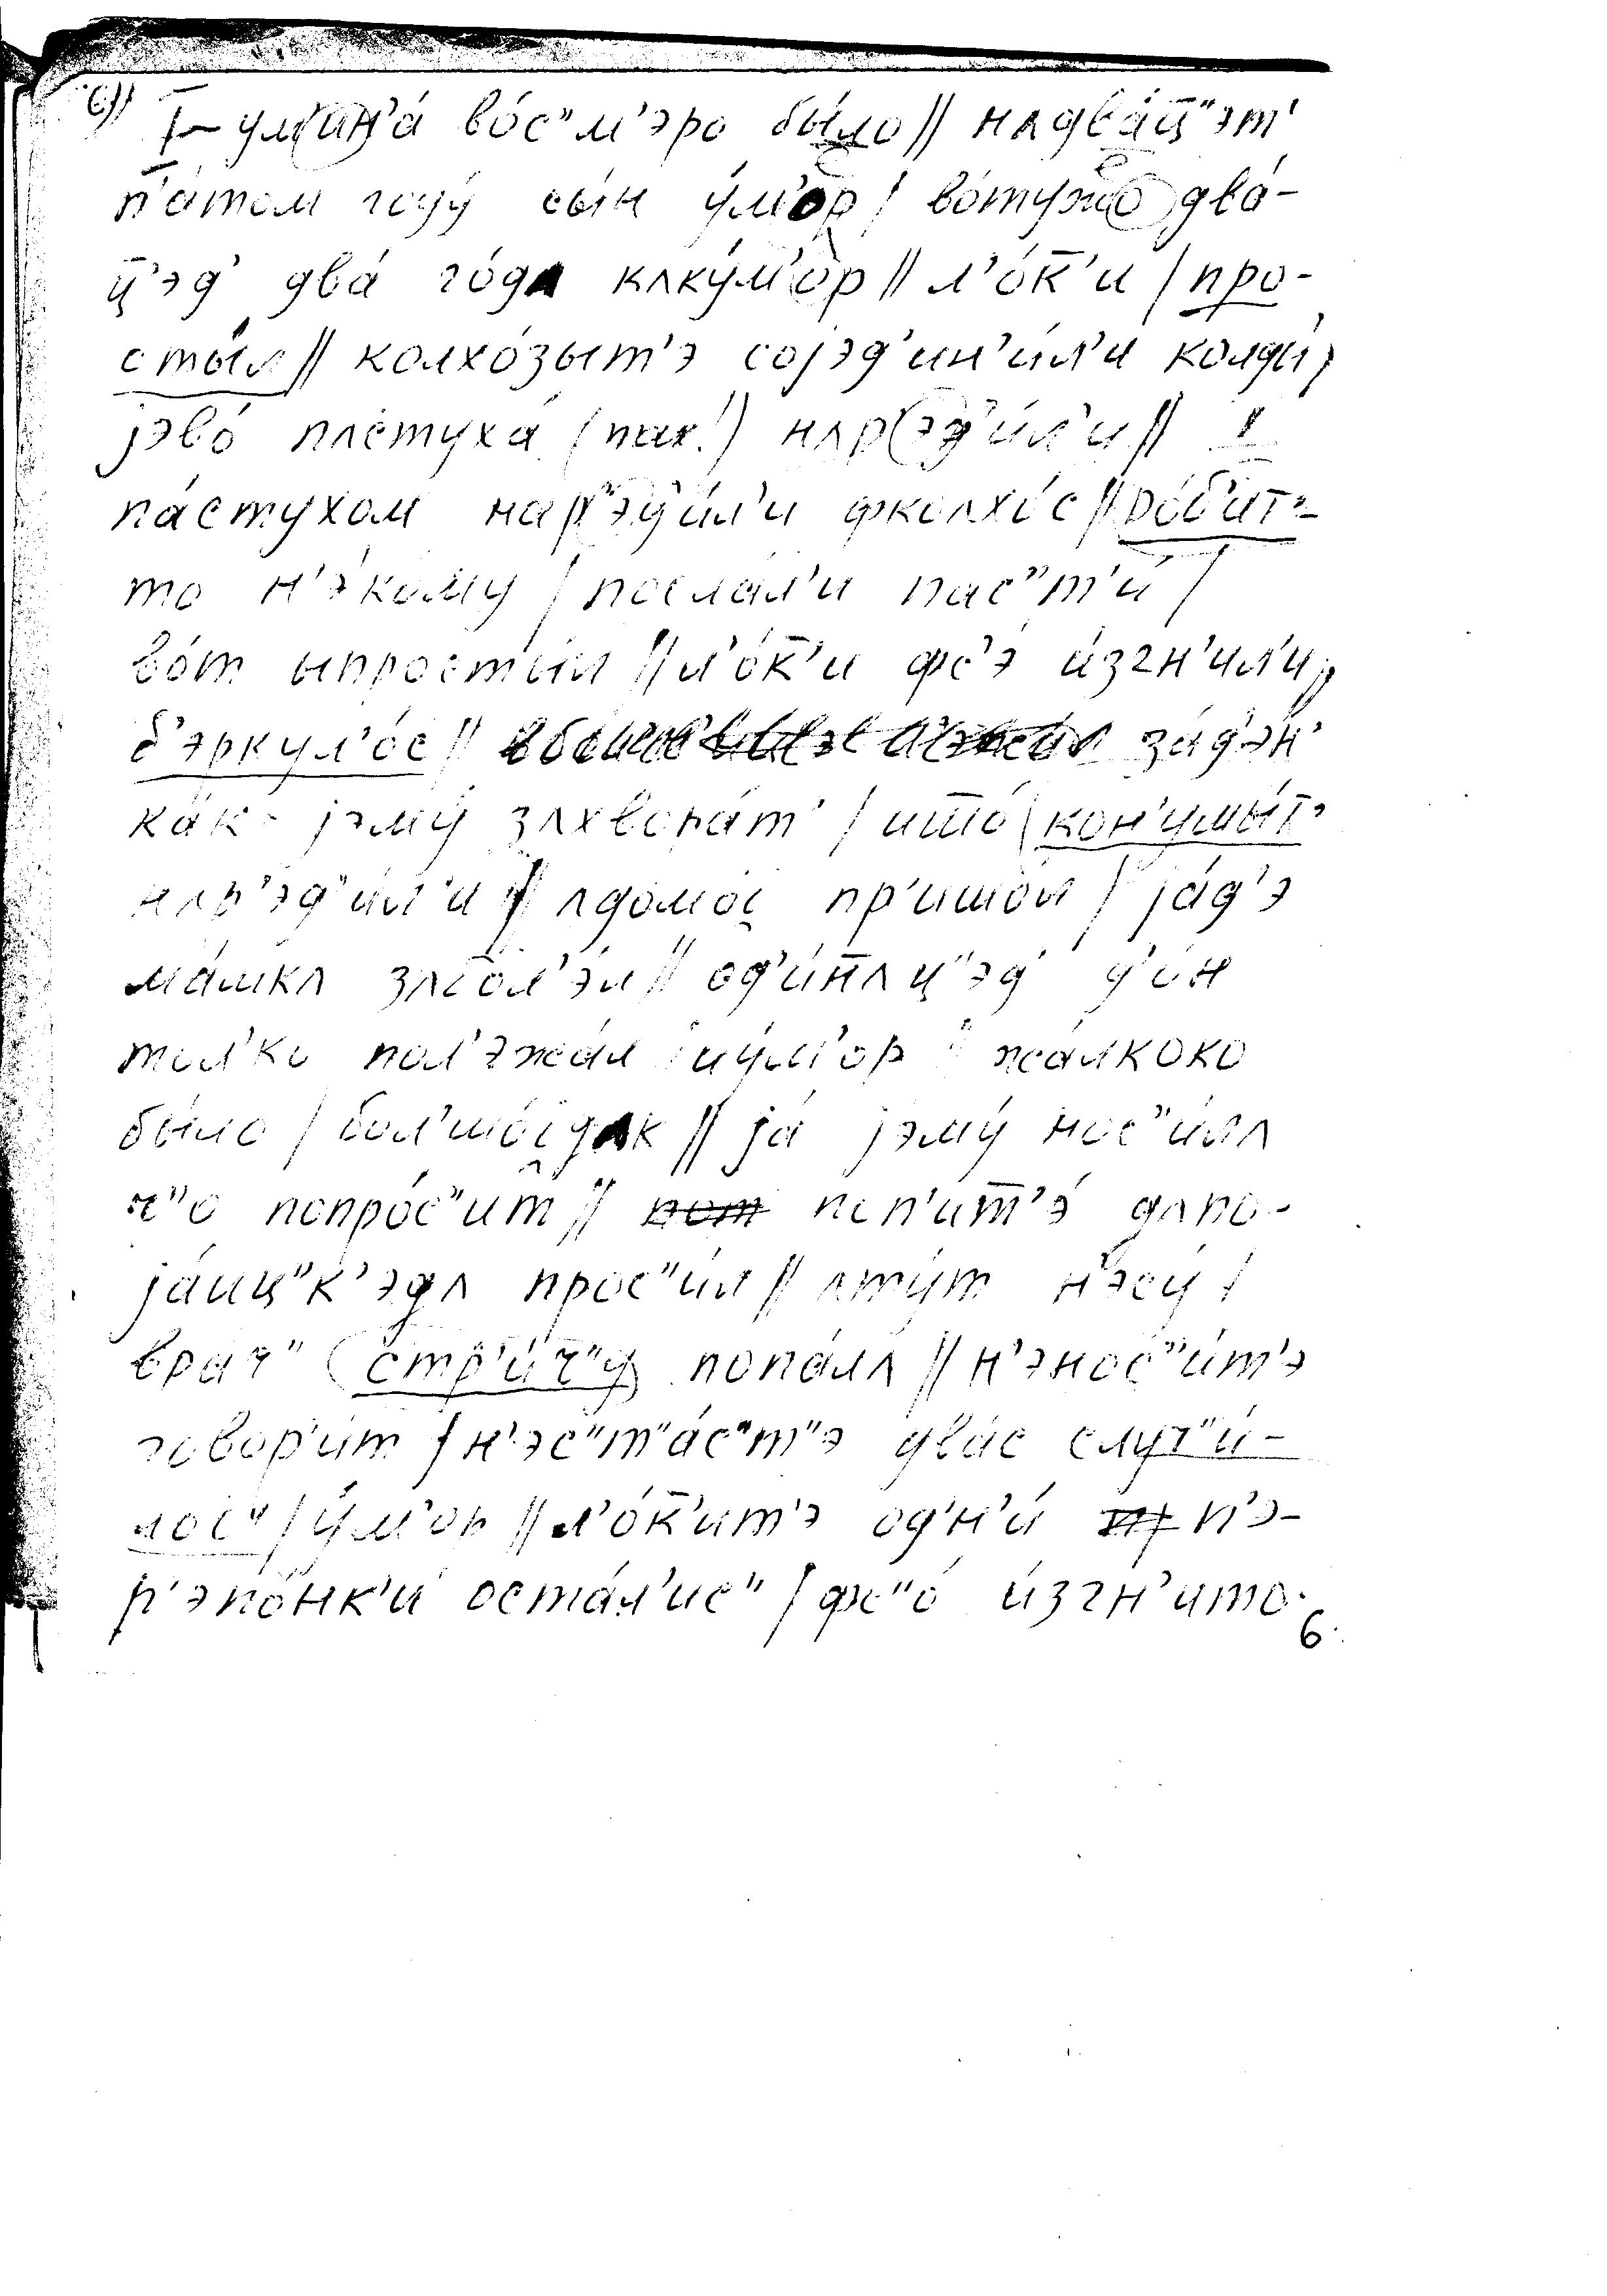 6)) ум(ин')á вóс"м'эро бы́ло // нʌдвáц̄"эт'
п'áтом году́ сы́н у́м'ор / вóтужо двá-
ц̄'эд' двá гóдʌ кʌку́м'ор // л'óк̄'и / про-
сты́л // колхóзыт'э соjэд'ин'и́л'и колды́,
jэвó пʌстухá (пах!) нʌр(эд')и́л'и //
пáстухом нар"эд'и́л'и фколхóс // рóб'ит'-
то н'э́кому / послáл'и пас"т'и́ /
вóт ыпросты́л // л'óк̄'и фс'э́ и́згн'ил'и,
б'эркул'óс // зáд'эн'
кáк jэму́ зʌхворáт' / што́ кон'ушы́т'
нʌр'эд'и́л'и // ʌдомóį пр'ишóл / jáд'э
мáмкʌ зʌбол'э́л // од'и́н̄ʌц"эд' д'óн
тол'ко пол'эжáл иу́м'ор жáлкоко
бы́ло / бол'шóįдʌк // já jэму́ нос"и́лʌ
ч"о попрóс"ит // поп'ит'э́ дʌпо-
jáиц"к'эдʌ прос"и́л // ʌту́т н'эсу́ /
врач" (стр'и́ч"у) попáлʌ // н'энос"и́т'э
говор'и́т / н'эс"т"áс"т"э двáс случ"и́-
лос" / у́м'ор // л'óк̄'ит'э од'н'и́ п'э-
р'эпóнк'и остáл'ис" / фс"ó и́згн'ито
6